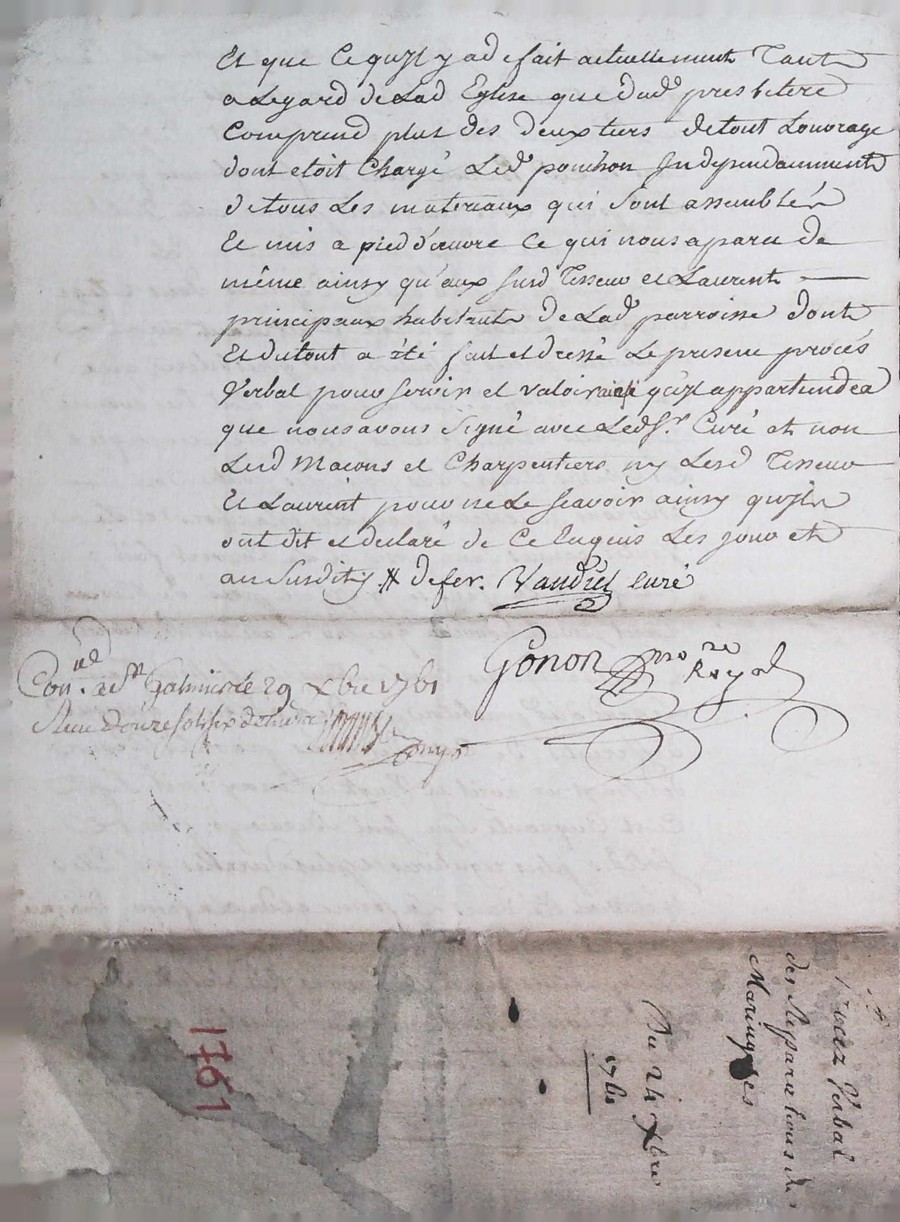 Et que ce quil y a de fait actuellement Tant
a Legard de Lad Eglise que dud presbitere
Comprend plus des deux tiers de tout Louvrage
dont etoit Chargé Led ponchon Independamment
de tous Les materiaux qui sont assemblés
Et mis a pied d'œuvre Ce qui nous a paru de
même ainsy qu'aux susd Tisseur et Laurent
principaux habitants de Lad parroisse dont
Et du tout a été fait et dressé Le present procés
Verbal pour servir et valoir ainsi qu'il appartiendra
que nous avons Signé avec Led Sr. Curé et non
Lesd Macons et Charpentiers ny Lesd Tisseur
Et Laurent pour ne Le scavoir ainsy quils
ont dit et declaré de Ce Enquis Les jour et
an Susdits de fer. Vaudiel curé
Gonon pro re Royal
Con. à St Galmier le 29 xbre 1761
Reçu douze sols six deniers
Procez Verbal
des Reparations de
Maringes
Du 24 xbre
1761
1761